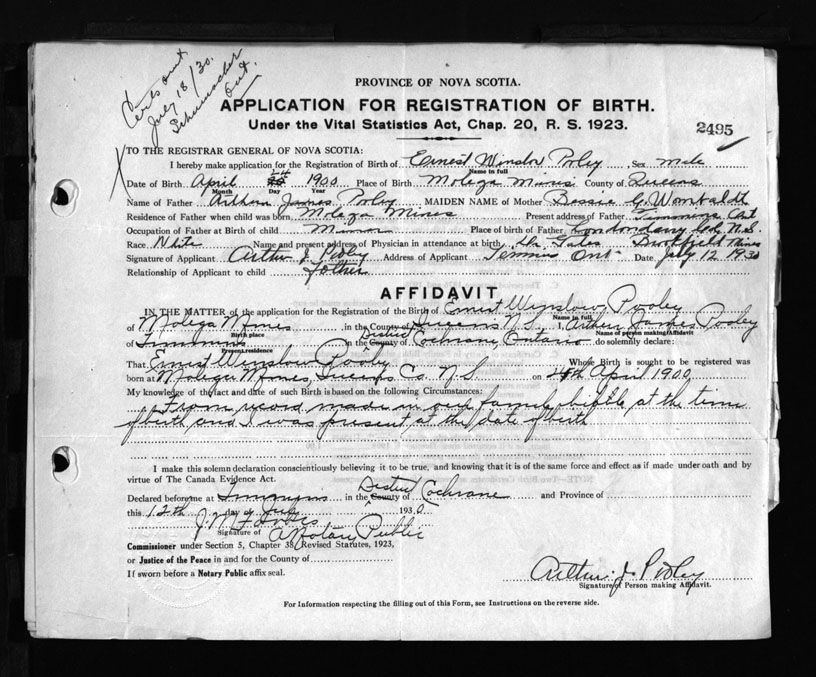 Certs out
July 18/30.
Schumacher
Ont.
PROVINCE OF NOVA SCOTIA.
APPLICATION FOR REGISTRATION OF BIRTH.
Under the Vital Statistics Act, Chap. 20, R. S. 1923.
2495
TO THE REGISTRAR GENERAL OF NOVA SCOTIA:
I hereby make application for the Registration of Birth of Ernest Winslow Pooley, Sex male
Name in full
Date of Birth April 24 1900 Place of Birth Molega Mines County of Queens
Month Day Year
Name of Father Arthur James Pooley MAIDEN NAME of Mother Bessie G. Wambaldt
Residence of Father when child was born Molega Mines Present address of Father Timmins Ont
Occupation of Father at Birth of child Miner Place of birth of Father Londonderry Col. N.S.
Race White Name and present address of Physician in attendance at birth Dr Gates Brookfield Mines
Signature of Applicant Arthur J. Pooley Address of Applicant Timmins Ont. Date July 12 1930
Relationship of Applicant to child Father
AFFIDAVIT
IN THE MATTER of the application for the Registration of the Birth of Ernest Winslow Pooley
Name in full
of Molega Mines in the County of Queens N.S. I, Arthur James Pooley
Birth place Name of person making Affidavit
of Timmins in the County of District Cochrane, Ontario do solemnly declare:
Present residence
That Ernest Winslow Pooley Whose Birth is sought to be registered was
born at Molega Mines, Queens Co N.S. on 24th April 1900
My knowledge of the fact and date of such Birth is based on the following Circumstances:
From record made in our family bible at the time
of birth and I was present at the date of birth
I make this solemn declaration conscientiously believing it to be true, and knowing that it is of the same force and effect as if made under oath and by
virtue of The Canada Evidence Act.
Declared before me at Timmins in the County of District Cochrane and Province of
this 12th day of July 1930.
Signature of A Notary Public
Commissioner under Section 5, Chapter 38, Revised Statutes, 1923,
or Justice of the Peace in and for the County of
If sworn before a Notary Public affix seal.
Arthur J. Pooley
Signature of Person making Affidavit.
For Information respecting the filling out of this Form, see Instructions on the reverse side.